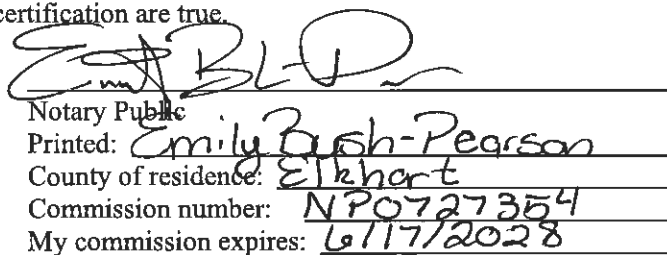 certification are true.
Notary Public
Printed: Emily Bush-Pearson
County of residence: Elkhart
Commission number: NP0727354
My commission expires: 6/17/2028